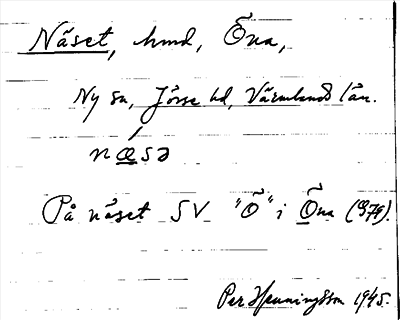 Näset, hmd, Öna,
Ny sn, Jösse hd, Värmlands län.
næsə
På näset SV "Ö" i Öna (GK).
Per Henningsson 1945.